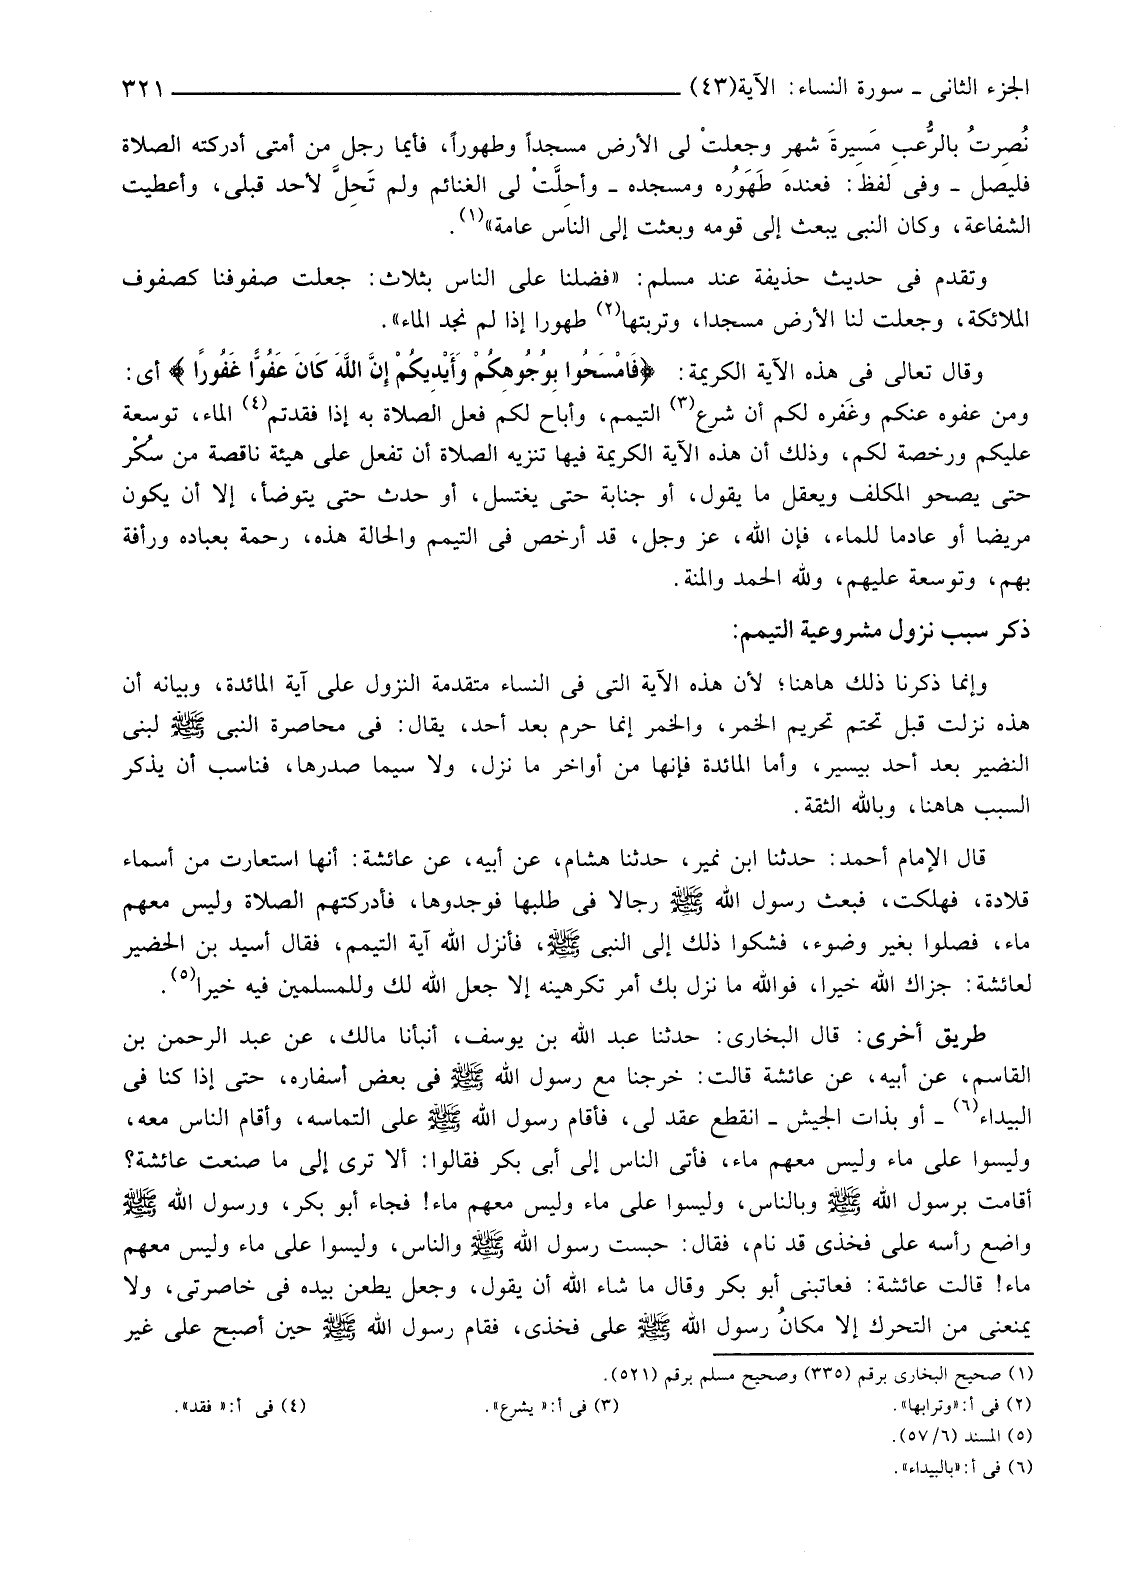 الجزء الثانى ـ سورة النساء: الآية(٤٣) ٣٢١
نُصِرتُ بالرُّعبِ مَسِيرةَ شهر وجعلتْ لى الأرض مسجداً وطهوراً، فأيما رجل من أمتى أدركته الصلاة
فليصل ـ وفى لفظ: فعندهَ طَهَوُره ومسجده ـ وأحِلَّتْ لى الغنائم ولم تَحِلَّ لأحد قبلى، وأعطيت
الشفاعة، وكان النبى يبعث إلى قومه وبعثت إلى الناس عامة»(١).
وتقدم فى حديث حذيفة عند مسلم: «فضلنا على الناس بثلاث: جعلت صفوفنا كصفوف
الملائكة، وجعلت لنا الأرض مسجدا، وتربتها(٢) طهورا إذا لم نجد الماء».
وقال تعالى فى هذه الآية الكريمة: ﴿فَامْسَحُوا بِوُجُوهِكُمْ وَأَيْدِيكُمْ إِنَّ اللَّهَ كَانَ عَفُوًّا غَفُورًا﴾ أى:
ومن عفوه عنكم وغَفره لكم أن شرع(٣) التيمم، وأباح لكم فعل الصلاة به إذا فقدتم(٤) الماء، توسعة
عليكم ورخصة لكم، وذلك أن هذه الآية الكريمة فيها تنزيه الصلاة أن تفعل على هيئة ناقصة من سُكْر
حتى يصحو المكلف ويعقل ما يقول، أو جنابة حتى يغتسل، أو حدث حتى يتوضأ، إلا أن يكون
مريضا أو عادما للماء، فإن الله، عز وجل، قد أرخص فى التيمم والحالة هذه، رحمة بعباده ورأفة
بهم، وتوسعة عليهم، ولله الحمد والمنة.
ذكر سبب نزول مشروعية التيمم:
وإنما ذكرنا ذلك هاهنا؛ لأن هذه الآية التى فى النساء متقدمة النزول على آية المائدة، وبيانه أن
هذه نزلت قبل تحتم تحريم الخمر، والخمر إنما حرم بعد أحد، يقال: فى محاصرة النبى ﷺ لبنى
النضير بعد أحد بيسير، وأما المائدة فإنها من أواخر ما نزل، ولا سيما صدرها، فناسب أن يذكر
السبب هاهنا، وبالله الثقة.
قال الإمام أحمد: حدثنا ابن نمير، حدثنا هشام، عن أبيه، عن عائشة: أنها استعارت من أسماء
قلادة، فهلكت، فبعث رسول الله ﷺ رجالا فى طلبها فوجدوها، فأدركتهم الصلاة وليس معهم
ماء، فصلوا بغير وضوء، فشكوا ذلك إلى النبى ﷺ، فأنزل الله آية التيمم، فقال أسيد بن الحضير
لعائشة: جزاك الله خيرا، فوالله ما نزل بك أمر تكرهينه إلا جعل الله لك وللمسلمين فيه خيرا(٥).
طريق أخرى: قال البخارى: حدثنا عبد الله بن يوسف، أنبأنا مالك، عن عبد الرحمن بن
القاسم، عن أبيه، عن عائشة قالت: خرجنا مع رسول الله ﷺ فى بعض أسفاره، حتى إذا كنا فى
البيداء(٦) ـ أو بذات الجيش ـ انقطع عقد لى، فأقام رسول الله ﷺ على التماسه، وأقام الناس معه،
وليسوا على ماء وليس معهم ماء، فأتى الناس إلى أبى بكر فقالوا: ألا ترى إلى ما صنعت عائشة؟
أقامت برسول الله ﷺ وبالناس، وليسوا على ماء وليس معهم ماء! فجاء أبو بكر، ورسول الله ﷺ
واضع رأسه على فخذى قد نام، فقال: حبست رسول الله ﷺ والناس، وليسوا على ماء وليس معهم
ماء! قالت عائشة: فعاتبنى أبو بكر وقال ما شاء الله أن يقول، وجعل يطعن بيده فى خاصرتى، ولا
يمنعنى من التحرك إلا مكانُ رسول الله ﷺ على فخذى، فقام رسول الله ﷺ حين أصبح على غير
(١) صحيح البخارى برقم (٣٣٥) وصحيح مسلم برقم (٥٢١).
(٢) فى أ: «وترابها». (٣) فى أ: « يشرع». (٤) فى أ: « فقد».
(٥) المسند (٦/ ٥٧).
(٦) فى أ: «بالبيداء».